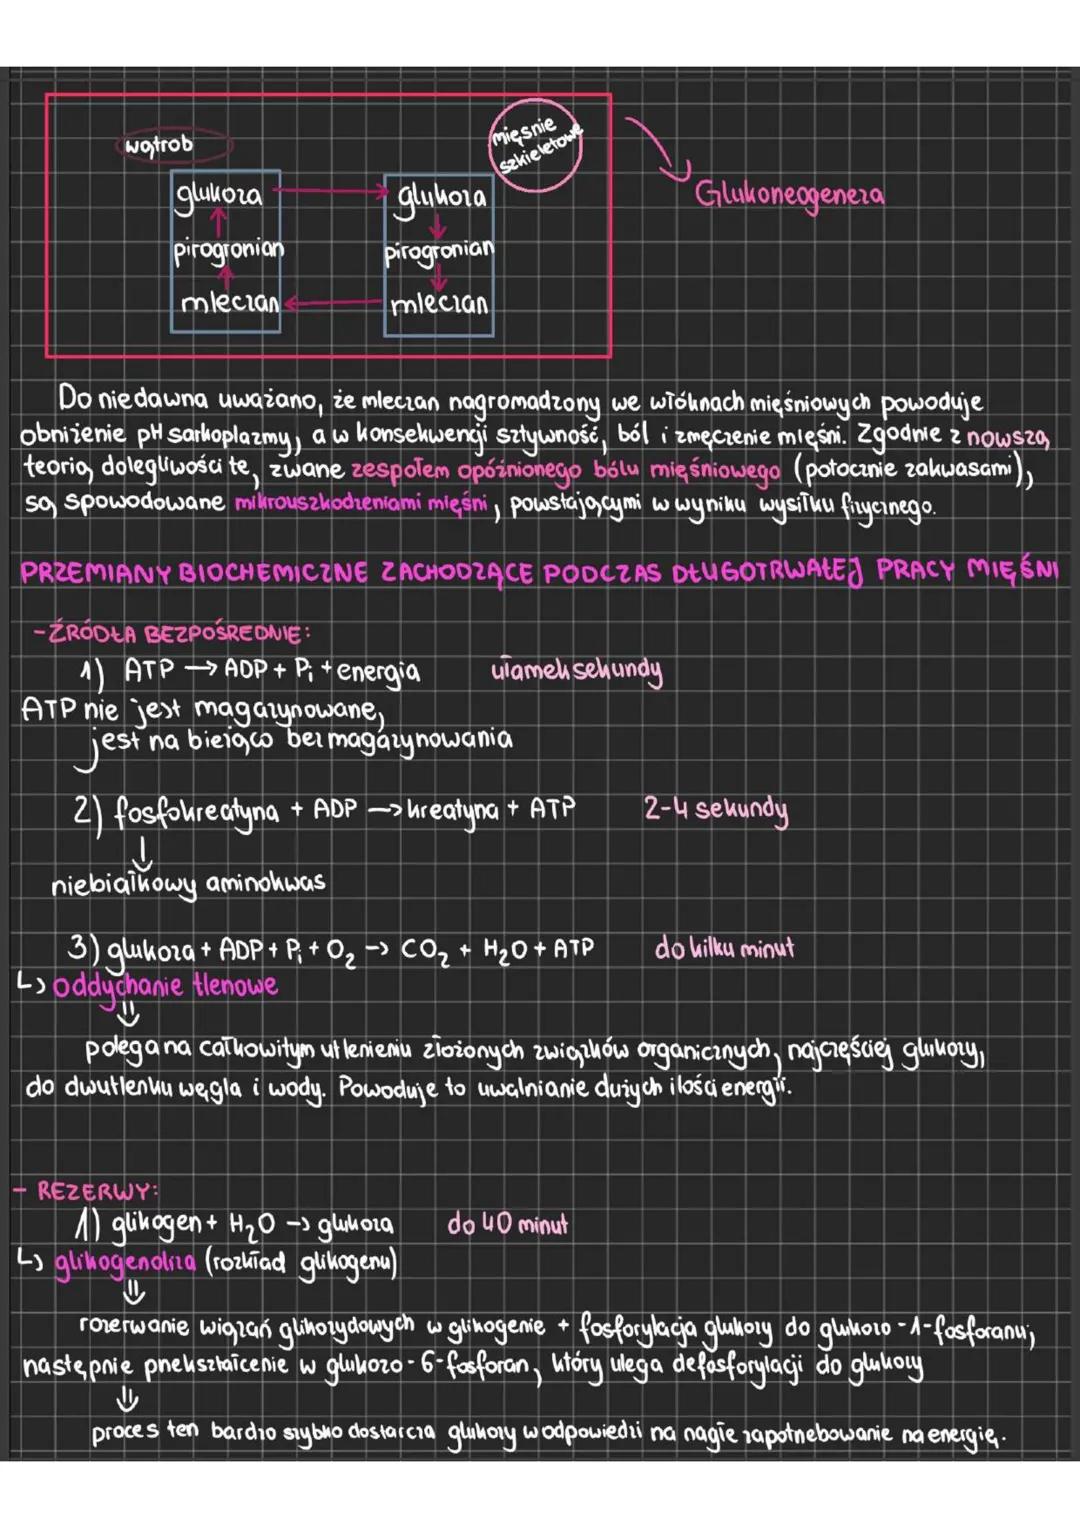 wątrob
mięśnie
szkieletowe
glukoza
glukoza
Glukoneogeneza
pirogronian
pirogronian
mleczan
mleczan
Do niedawna uważano, że mleczan nagromadzony we włóknach mięśniowych powoduje
obniżenie pH sarkoplazmy, a w konsekwencji sztywność, ból i zmęczenie mięśni. Zgodnie z nowszą
teorią dolegliwości te, zwane zespołem opóźnionego bólu mięśniowego (potocznie zakwasami),
są spowodowane mikrouszkodzeniami mięśni, powstającymi w wyniku wysiłku fizycznego.
PRZEMIANY BIOCHEMICZNE ZACHODZĄCE PODCZAS DŁUGOTRWAŁEJ PRACY MIĘŚNI
-ŹRÓDŁA BEZPOŚREDNIE:
1) ATP → ADP + Pi + energia ułamek sekundy
ATP nie jest magazynowane,
jest na bieżąco bez magazynowania
2) fosfokreatyna + ADP → kreatyna + ATP 2-4 sekundy
↓
niebiałkowy aminokwas
3) glukoza + ADP + Pi + O₂ → CO₂ + H₂O + ATP do kilku minut
↳ oddychanie tlenowe
⇓
polega na całkowitym utlenieniu złożonych związków organicznych, najczęściej glukozy,
do dwutlenku węgla i wody. Powoduje to uwalnianie dużych ilości energii.
- REZERWY:
1) glikogen + H₂O → glukoza do 40 minut
↳ glikogenoliza (rozkład glikogenu)
⇓
rozerwanie wiązań glikozydowych w glikogenie + fosforylacja glukozy do glukozo-1-fosforanu,
następnie przekształcenie w glukozo-6-fosforan, który ulega defosforylacji do glukozy
⇓
proces ten bardzo szybko dostarcza glukozy w odpowiedzi na nagłe zapotrzebowanie na energię.